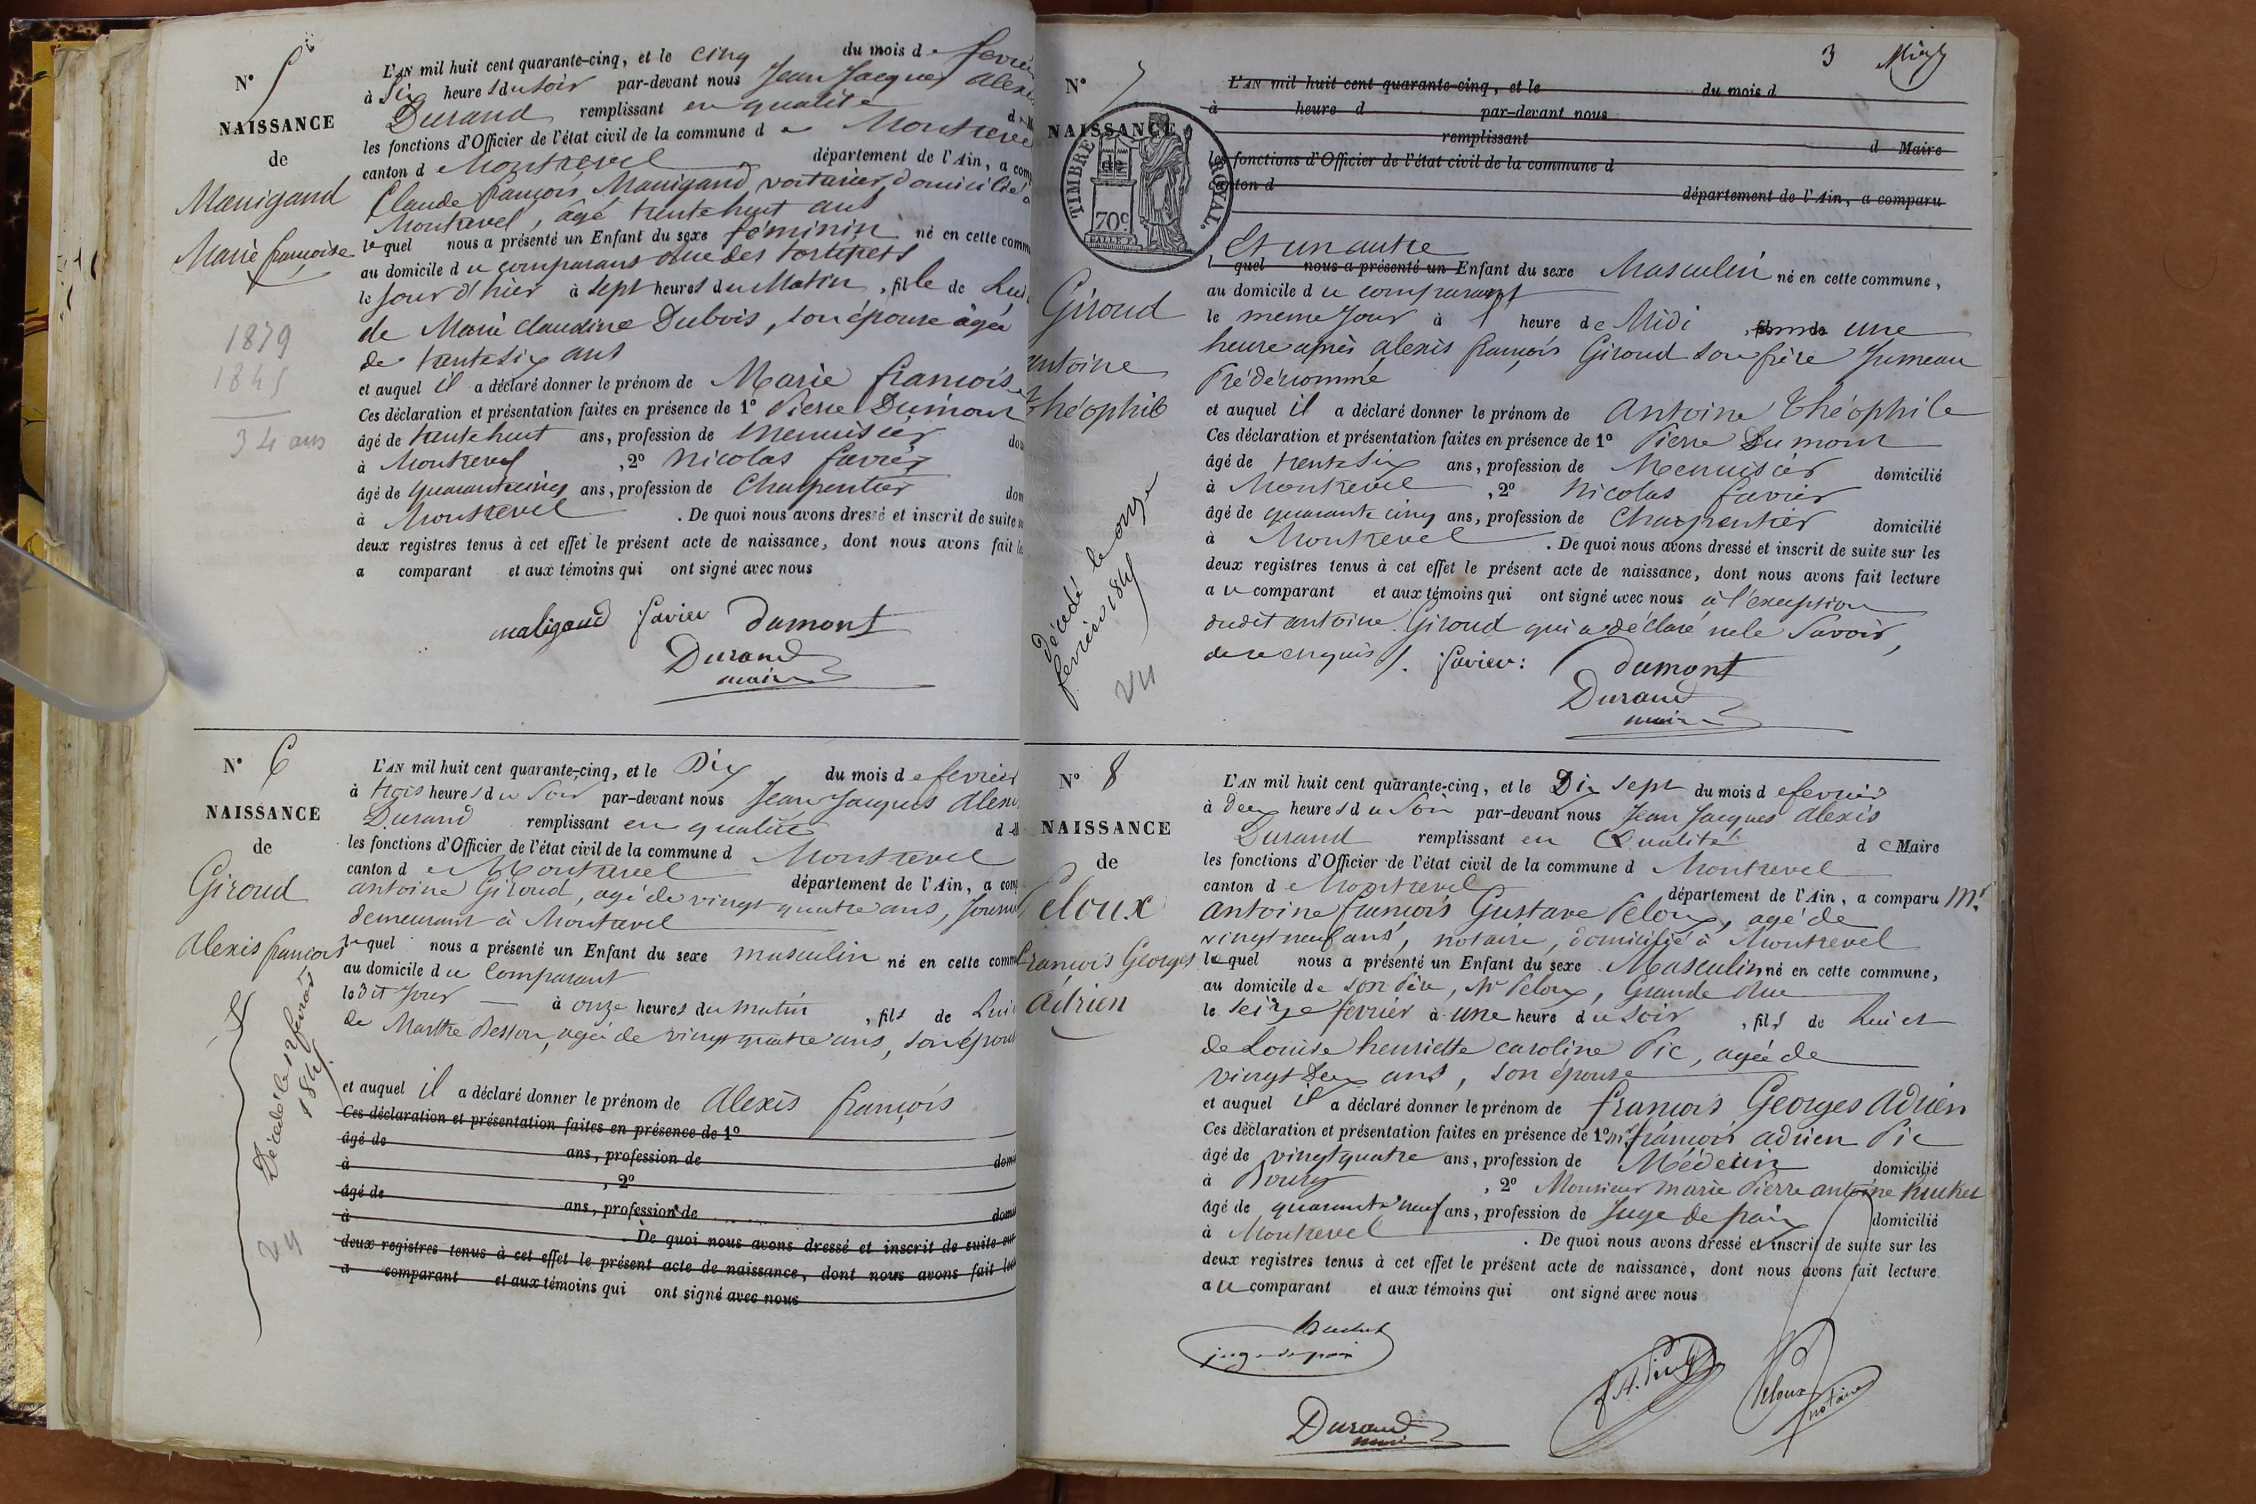 N° 5
NAISSANCE
de
Manigand
Marie françoise
1879
1845
34 ans
L'AN mil huit cent quarante-cinq, et le cinq du mois de fevrier
à six heures du soir par-devant nous Jean Jacques Alexis
Durand remplissant en qualité d
les fonctions d'Officier de l'état civil de la commune de Montrevel
canton d Montrevel département de l'Ain, a comp
Claude françois Manigand, voiturier, domicilié à
Montrevel, âgé trente huit ans
lequel nous a présenté un Enfant du sexe féminin né en cette comm
au domicile du comparans rue des
le jour d'hier à sept heures du Matin, fille de Lui
de Marie Claudine Dubois, son épouse âgée
de trente six ans
et auquel il a déclaré donner le prénom de Marie françoise
Ces déclaration et présentation faites en présence de 1° Pierre Dumont
âgé de trente huit ans, profession de Menuisier dom
à Montrevel, 2° Nicolas favier
âgé de quarante cinq ans, profession de Charpentier dom
à Montrevel. De quoi nous avons dressé et inscrit de suite
deux registres tenus à cet effet le présent acte de naissance, dont nous avons fait le
a comparant et aux témoins qui ont signé avec nous
maligand favier dumont
Durand
maire
N° 6
NAISSANCE
de
Giroud
Alexis françois
Décédé le
fevrier
1845
L'AN mil huit cent quarante-cinq, et le Dix du mois de fevrier
à trois heures du soir par-devant nous Jean Jacques Alexis
Durand remplissant en qualité d
les fonctions d'Officier de l'état civil de la commune d Montrevel
canton de Montrevel département de l'Ain, a comp
antoine Giroud, agé de vingt quatre ans,
demeurant à Montrevel
lequel nous a présenté un Enfant du sexe masculin né en cette comm
au domicile du comparant
ledit jour à onze heures du matin, fils de Lui
de Marthe Besson, agée de vingt quatre ans, son épouse
et auquel il a déclaré donner le prénom de Alexis françois
Ces déclaration et présentation faites en présence de 1°
âgé de ans, profession de dom
à, 2°
âgé de ans, profession de dom
à. De quoi nous avons dressé et inscrit de suite sur
deux registres tenus à cet effet le présent acte de naissance, dont nous avons fait lec
a comparant et aux témoins qui ont signé avec nous
3
N° 7
NAISSANCE
de
TIMBRE ROYAL.
70c
Giroud
antoine
théophile
décédé le onze
fevrier 1845
L'AN mil huit cent quarante-cinq, et le du mois d
à heure d par-devant nous
remplissant d Maire
les fonctions d'Officier de l'état civil de la commune d
canton d département de l'Ain, a comparu
Et un autre
quel nous a présenté un Enfant du sexe Masculin né en cette commune,
au domicile du comparant
le meme jour à heure de Midi, une
heure après alexis françois Giroud son frère Jumeau
Prédénommé
et auquel il a déclaré donner le prénom de Antoine théophile
Ces déclaration et présentation faites en présence de 1° Pierre Dumont
âgé de trente six ans, profession de Menuisier domicilié
à Montrevel, 2° Nicolas favier
âgé de quarante cinq ans, profession de Charpentier domicilié
à Montrevel. De quoi nous avons dressé et inscrit de suite sur les
deux registres tenus à cet effet le présent acte de naissance, dont nous avons fait lecture
au comparant et aux témoins qui ont signé avec nous à l'exception
dudit antoine Giroud qui a déclaré ne le Savoir,
de ce enquis /. favier: dumont
Durand
maire
N° 8
NAISSANCE
de
Peloux
françois Georges
Adrien
L'AN mil huit cent quarante-cinq, et le Dix sept du mois de fevrier
à deux heures du Soir par-devant nous Jean Jacques Alexis
Durand remplissant en Qualité de Maire
les fonctions d'Officier de l'état civil de la commune d Montrevel
canton de Montrevel département de l'Ain, a comparu Mr
antoine francois Gustave Peloux, agé de
vingt neuf ans, notaire, domicilié à Montrevel
lequel nous a présenté un Enfant du sexe Masculin né en cette commune,
au domicile de son Père, Mr Peloux, Grande Rue
le seize fevrier à une heure du soir, fils de Lui et
de Louise henriette caroline Pic, agée de
vingt Deux ans, son épouse
et auquel il a déclaré donner le prénom de françois Georges Adrien
Ces déclaration et présentation faites en présence de 1° Mr françois adrien Pic
âgé de vingt quatre ans, profession de Médecin domicilié
à Bourg, 2° Monsieur marie Pierre antoine
âgé de quarante neuf ans, profession de Juge de paix domicilié
à Montrevel. De quoi nous avons dressé et inscrit de suite sur les
deux registres tenus à cet effet le présent acte de naissance, dont nous avons fait lecture
au comparant et aux témoins qui ont signé avec nous
juge de paix
Peloux
notaire
Durand
maire